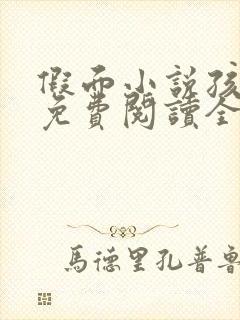 假面小説孩
免費閱讀全
馬德里孔普魯